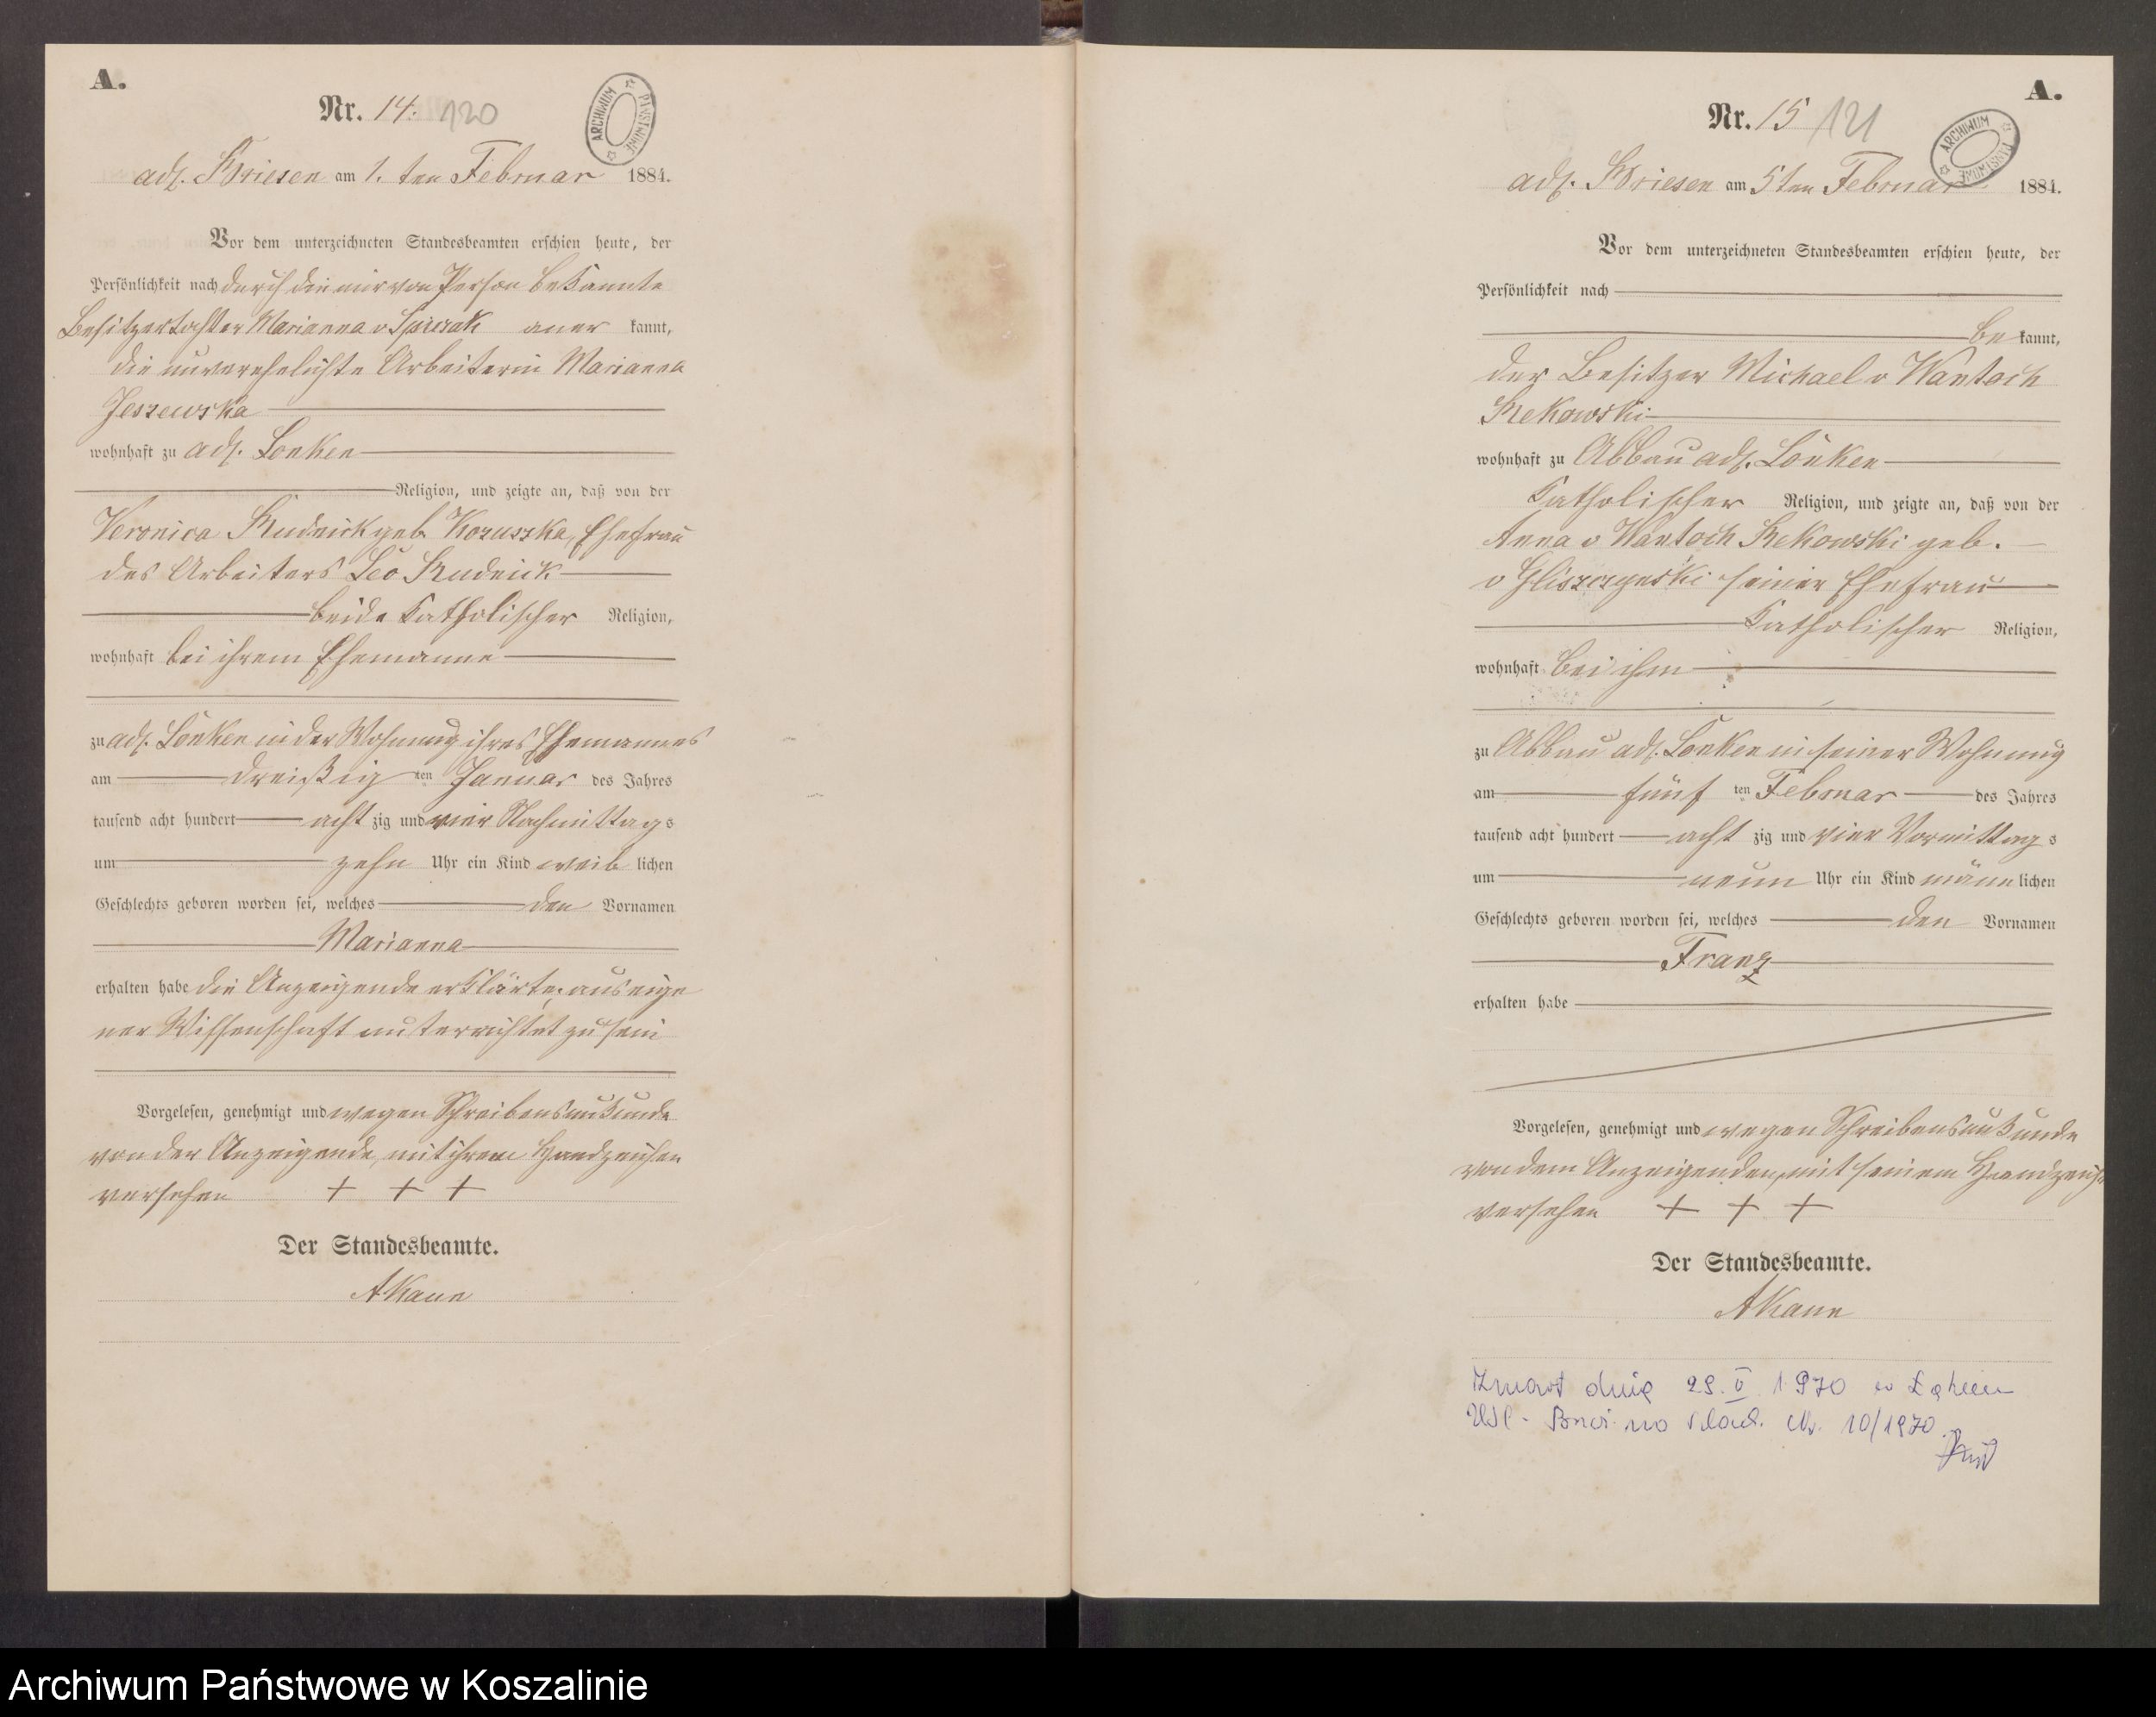 A.
Nr. 14. 120
ARCHIWUM PAŃSTWOWE
adl. Briesen am 1. ten Februar 1884.
Vor dem unterzeichneten Standesbeamten erschien heute, der
Persönlichkeit nach durch die mir von Person bekannte
Besitzertochter Marianna v Spiczak aner kannt,
die unverehelichte Arbeiterin Marianna
Jeszewska
wohnhaft zu adl. Lonken
Religion, und zeigte an, daß von der
Veronica Rudnick geb. Kozuszka, Ehefrau
des Arbeiters Leo Rudnick
beide katholischer Religion,
wohnhaft bei ihrem Ehemanne
zu adl. Lonken in der Wohnung ihres Ehemannes
am dreißig ten Januar des Jahres
tausend acht hundert acht zig und vier Nachmittag s
um zehn Uhr ein Kind weib lichen
Geschlechts geboren worden sei, welches den Vornamen
Marianna
erhalten habe die Anzeigende erklärte, aus eige
ner Wissenschaft unterrichtet zu sein
Vorgelesen, genehmigt und wegen Schreibensunkunde
von der Anzeigende, mit ihrem Handzeichen
versehen + + +
Der Standesbeamte.
AKann
A.
Nr. 15 121
ARCHIWUM PAŃSTWOWE
adl. Briesen am 5 ten Februar 1884.
Vor dem unterzeichneten Standesbeamten erschien heute, der
Persönlichkeit nach
be kannt,
der Besitzer Michael v Wantoch
Rekowski
wohnhaft zu Abbau adl. Lonken
katholischer Religion, und zeigte an, daß von der
Anna v Wantoch Rekowski geb.
v Gliszczynski seiner Ehefrau
katholischer Religion,
wohnhaft bei ihm
zu Abbau adl. Lonken in seiner Wohnung
am fünf ten Februar des Jahres
tausend acht hundert acht zig und vier Vormittag s
um neun Uhr ein Kind männ lichen
Geschlechts geboren worden sei, welches den Vornamen
Franz
erhalten habe
Vorgelesen, genehmigt und wegen Schreibensunkunde
von dem Anzeigenden, mit seinem Handzeich
versehen + + +
Der Standesbeamte.
AKann
Zmarł dnia 29. V 1970 w Łąkiem
USC - Borzyszkowy Nr. 10/1970
Archiwum Państwowe w Koszalinie